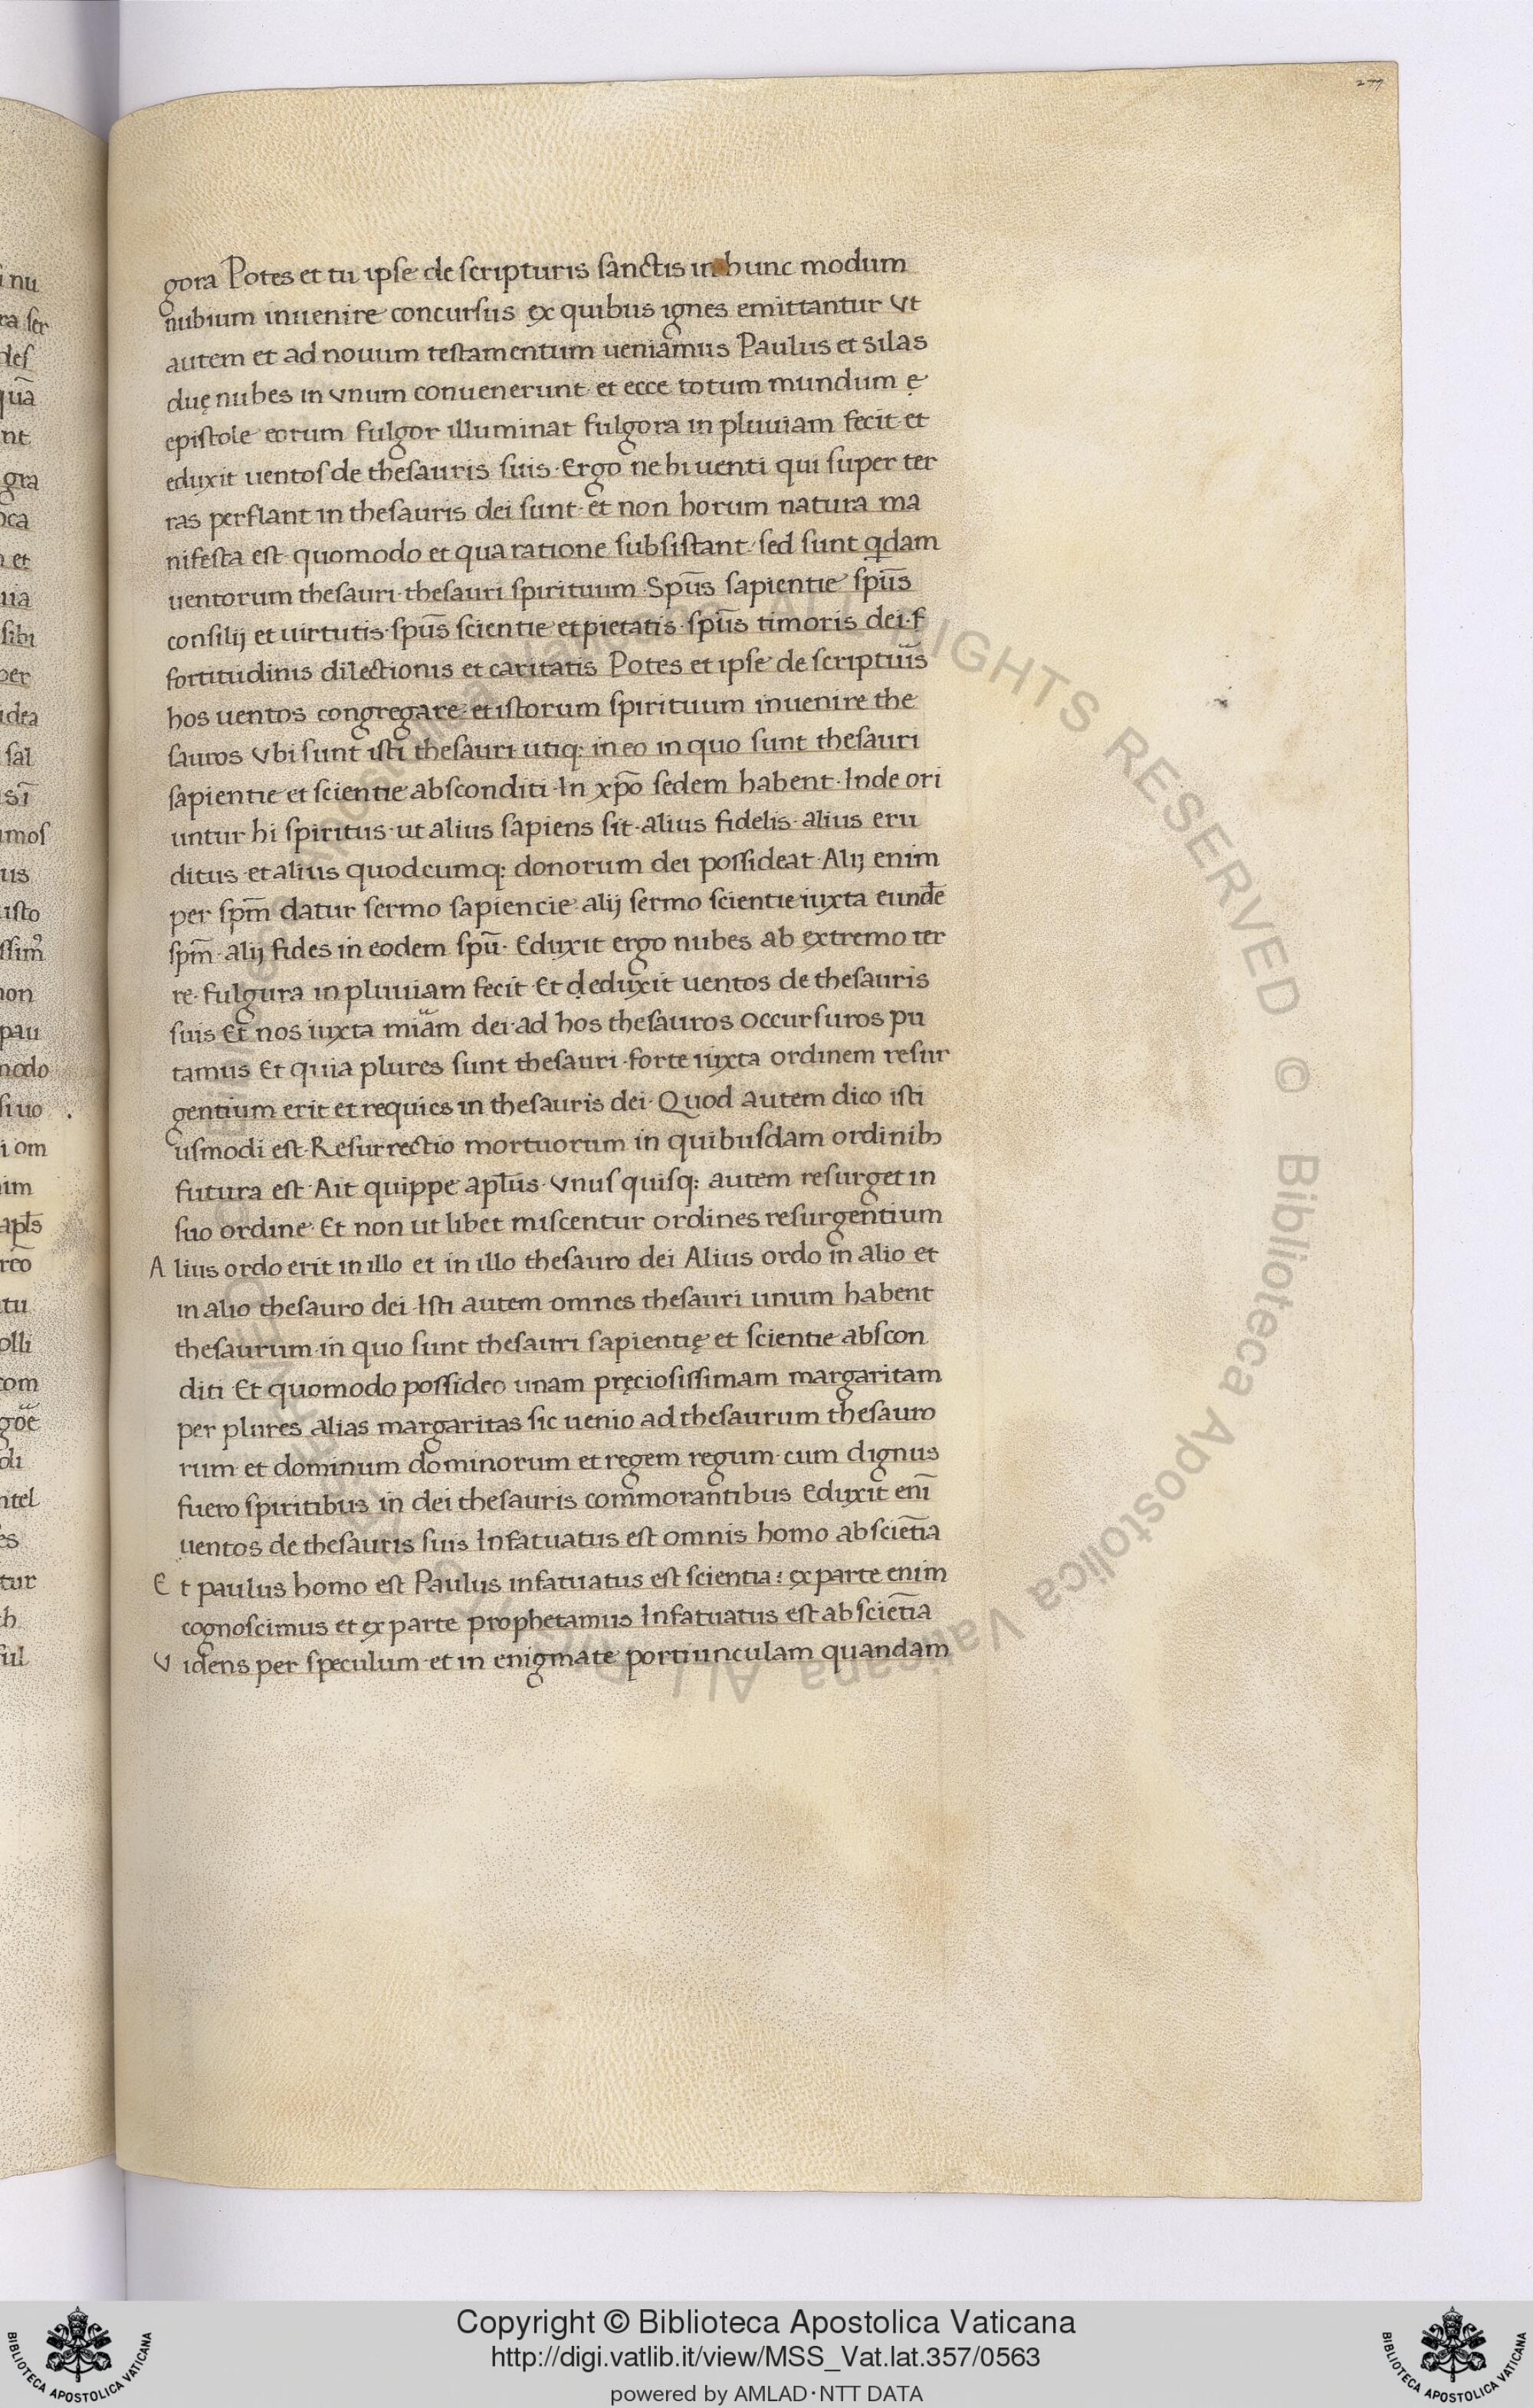 277
gora Potes et tu ipse de scripturis sanctis in hunc modum
nubium inuenire concursus ex quibus ignes emittantur Vt
autem et ad nouum testamentum ueniamus Paulus et silas
duę nubes in vnum conuenerunt et ecce totum mundum ę
epistole eorum fulgor illuminat fulgora in pluuiam fecit et
eduxit uentos de thesauris suis · Ergo ne hi uenti qui super ter
ras perflant in thesauris dei sunt · et non horum natura ma
nifesta est quomodo et qua ratione subsistant · sed sunt qdam
uentorum thesauri · thesauri spirituum · Spūs sapientie spūs
consilij et uirtutis · spūs scientie et pietatis · spūs timoris dei · f
fortitudinis dilectionis et caritatis Potes et ipse de scriptuis
hos uentos congregare · et istorum spirituum inuenire the
sauros Vbi sunt isti thesauri utiq: in eo in quo sunt thesauri
sapientie et scientie absconditi · In xp̄o sedem habent · Inde ori
untur hi spiritus · ut alius sapiens sit · alius fidelis · alius eru
ditus · et alius quodcumq: donorum dei possideat · Alij enim
per sp̄m datur sermo sapiencie alij sermo scientie iuxta eundē
sp̄m · alij fides in eodem spū · Eduxit ergo nubes ab extremo ter
re · fulgura in pluuiam fecit · Et deduxit uentos de thesauris
suis Et nos iuxta miām dei · ad hos thesauros occursuros pu
tamus Et quia plures sunt thesauri · forte iuxta ordinem resur
gentium erit et requies in thesauris dei · Quod autem dico isti
usmodi est · Resurrectio mortuorum in quibusdam ordinibꝫ
futura est · Ait quippe apl̄us · Vnusquisq: autem resurget in
suo ordine · Et non ut libet miscentur ordines resurgentium
A lius ordo erit in illo et in illo thesauro dei Alius ordo in alio et
in alio thesauro dei · Isti autem omnes thesauri unum habent
thesaurum · in quo sunt thesauri sapientię et scientie abscon
diti Et quomodo possideo unam pręciosissimam margaritam
per plures alias margaritas sic uenio ad thesaurum thesauro
rum et dominum dominorum et regem regum · cum dignus
fuero spiritibus in dei thesauris commorantibus Eduxit enī
uentos de thesauris suis Infatuatus est omnis homo ab sciētia
E t paulus homo est Paulus infatuatus est scientia : ex parte enim
cognoscimus et ex parte prophetamus Infatuatus est ab sciētia
V idens per speculum et in enigmate portiunculam quandam
Copyright © Biblioteca Apostolica Vaticana
http://digi.vatlib.it/view/MSS_Vat.lat.357/0563
powered by AMLAD · NTT DATA
BIBLIOTECA APOSTOLICA VATICANA
BIBLIOTECA APOSTOLICA VATICANA